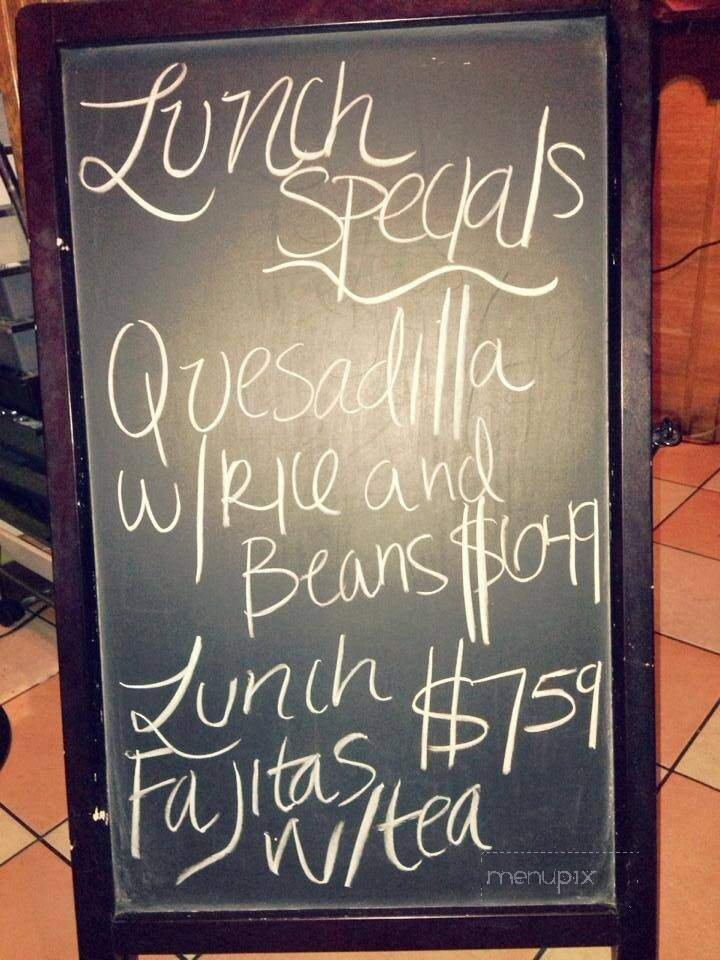 Lunch
Specials
Quesadilla
w/ Rice and
Beans $649
Lunch $759
Fajitas
w/tea
menupix